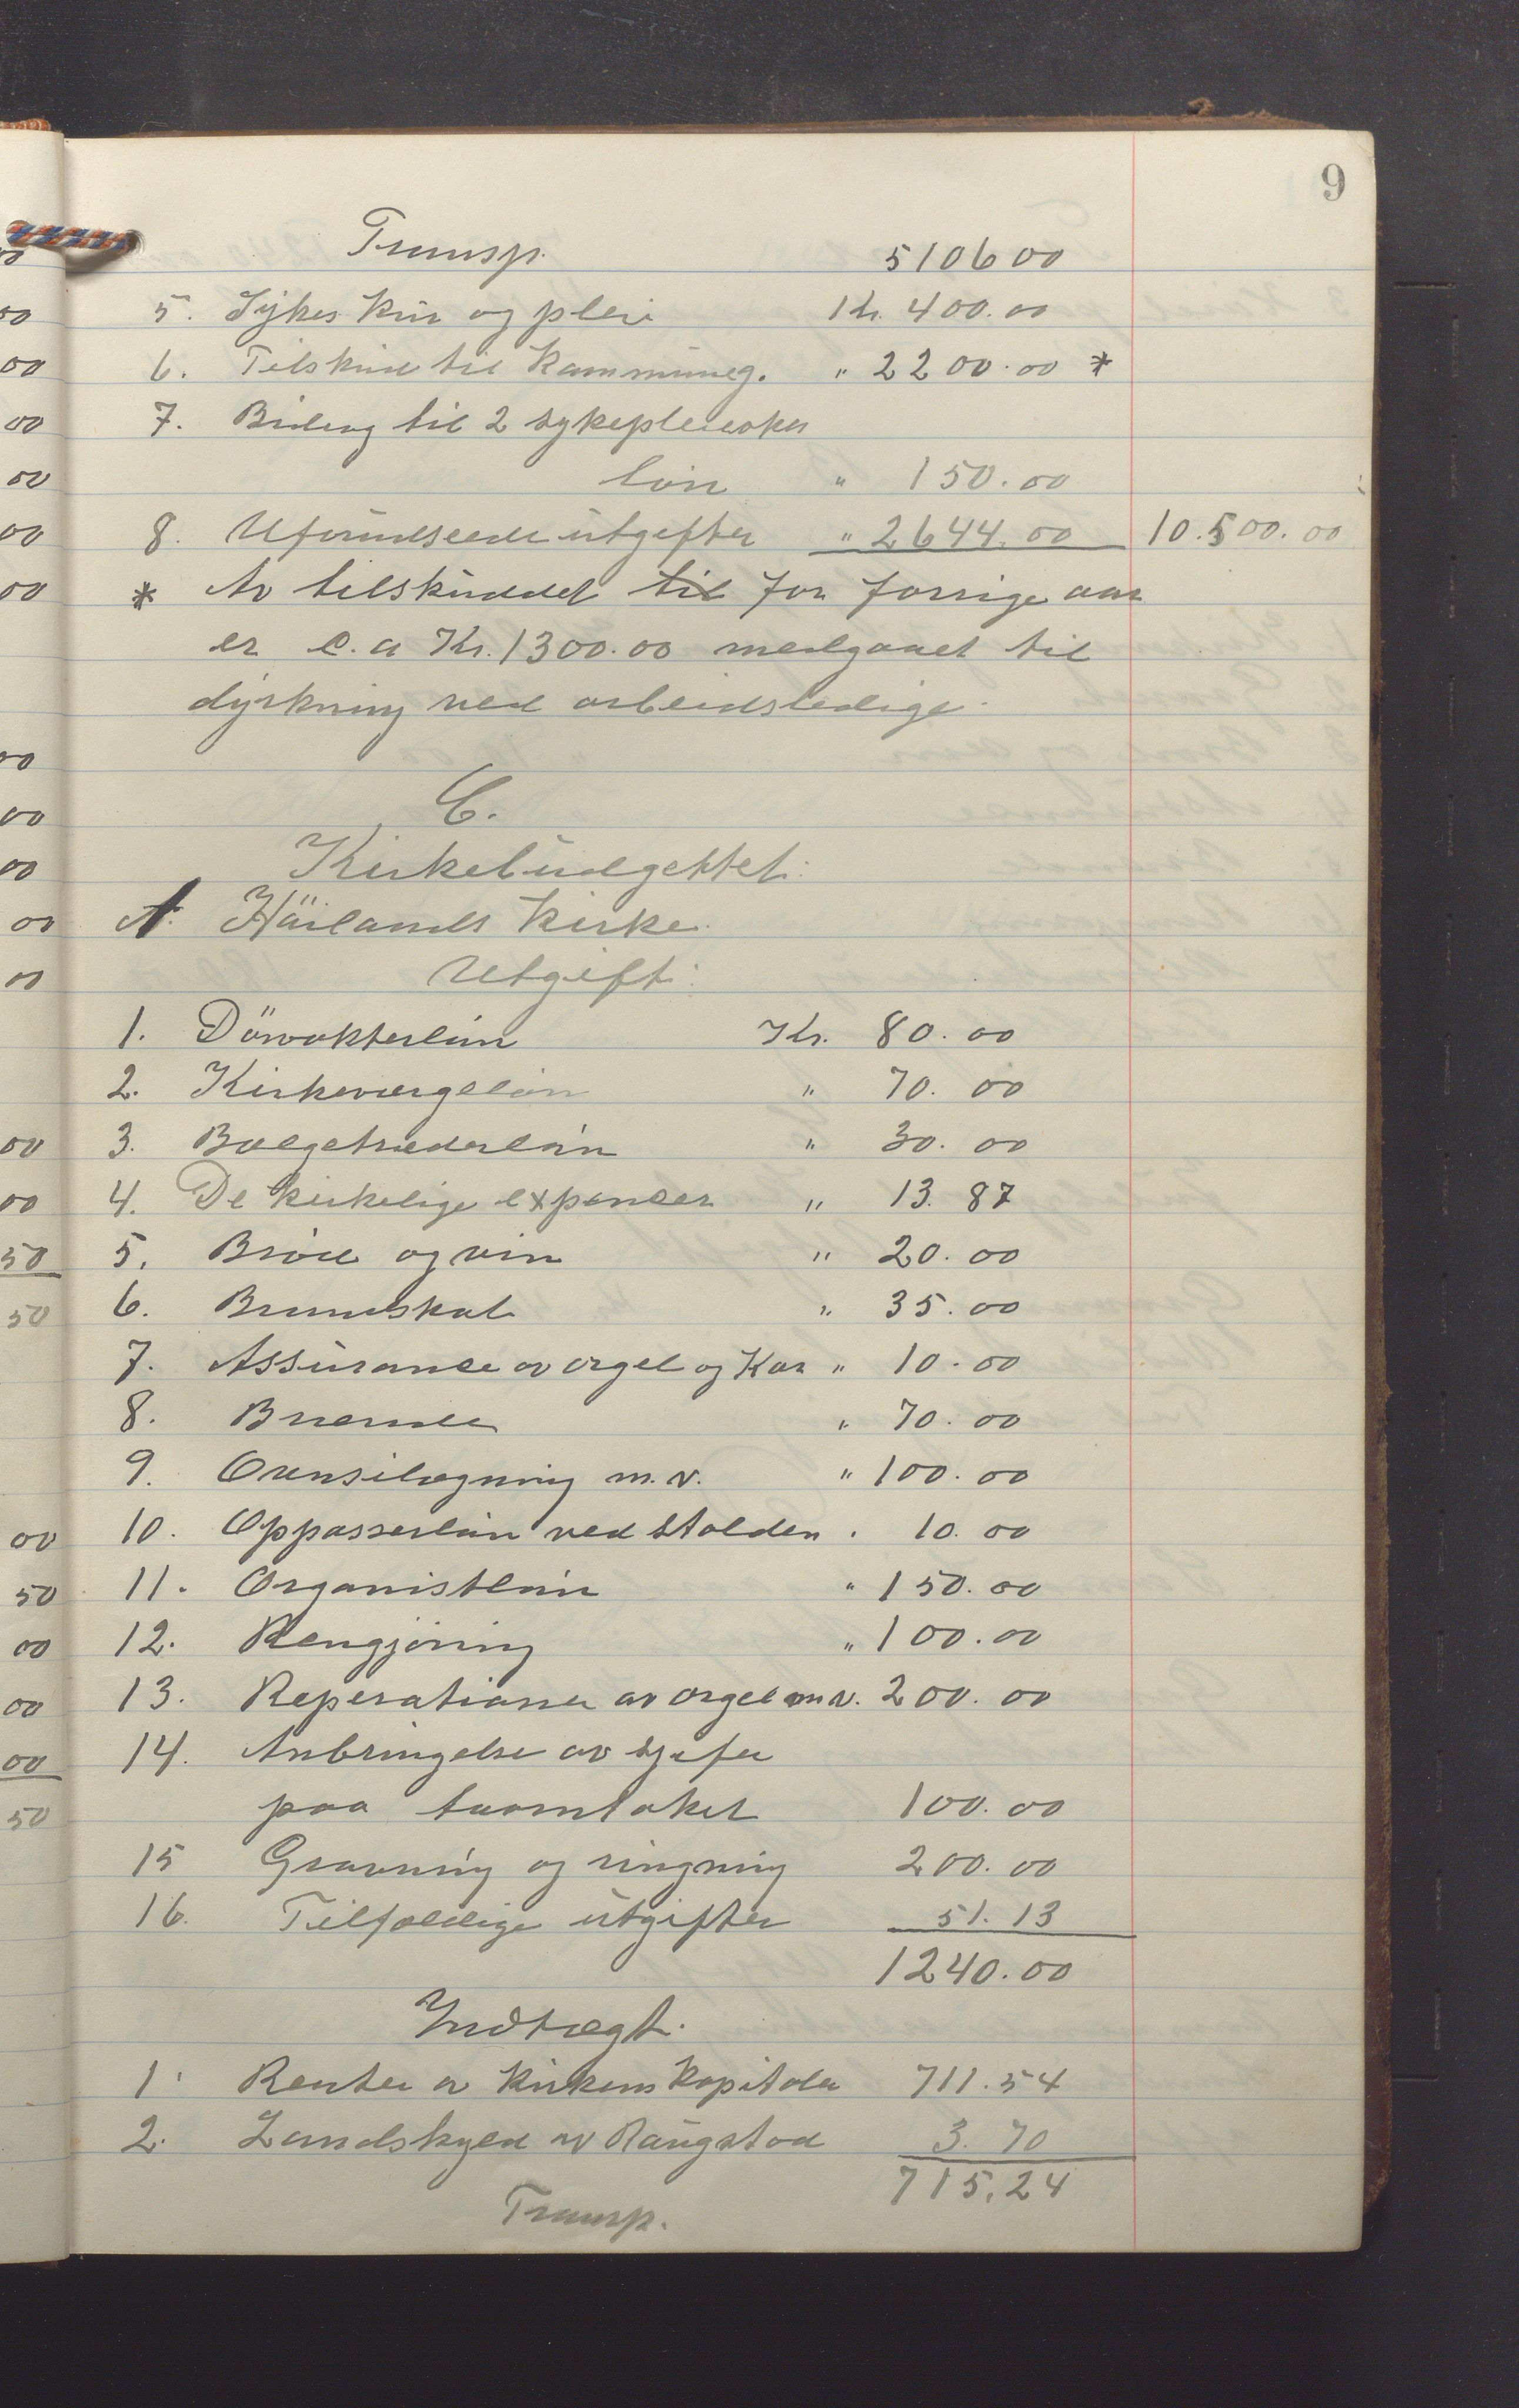 9
Transp. 5106 00
5. Sykes kur og pleie Kr. 400.00
6. Tilskud til kommuneg. " 2200.00 *
7. Bidrag til 2 sykepleierskers
løn " 150.00
8. Uforudseede utgifter " 2644.00 10.500.00
* Av tilskuddet til for forrige aar
er c.a Kr. 1300.00 medgaaet til
dyrkning ved arbeidsledige.
C.
Kirkebudgettet.
A. Høilands kirke.
Utgift.
1. Dørvokterløn Kr. 80.00
2. Kirkeværgeløn " 70.00
3. Bælgetræderløn " 30.00
4. De kirkelige expenser " 13.87
5. Brød og vin " 20.00
6. Brandskat " 35.00
7. Assurance av orgel og Kor " 10.00
8. Brænde " 70.00
9. Ovnsilægning m.v. " 100.00
10. Oppasserløn ved stalden . 10.00
11. Organistløn " 150.00
12. Rengjøring " 100.00
13. Reperationer av orgel m.v. 200.00
14. Anbringelse av
paa taarntaket 100.00
15 Gravning og ringning 200.00
16. Tilfældige utgifter 51.13
1240.00
Indtægt.
1. Renter av kirkens kapitaler 711.54
2. Landskyld av Raugstad 3.70
715.24
Transp.